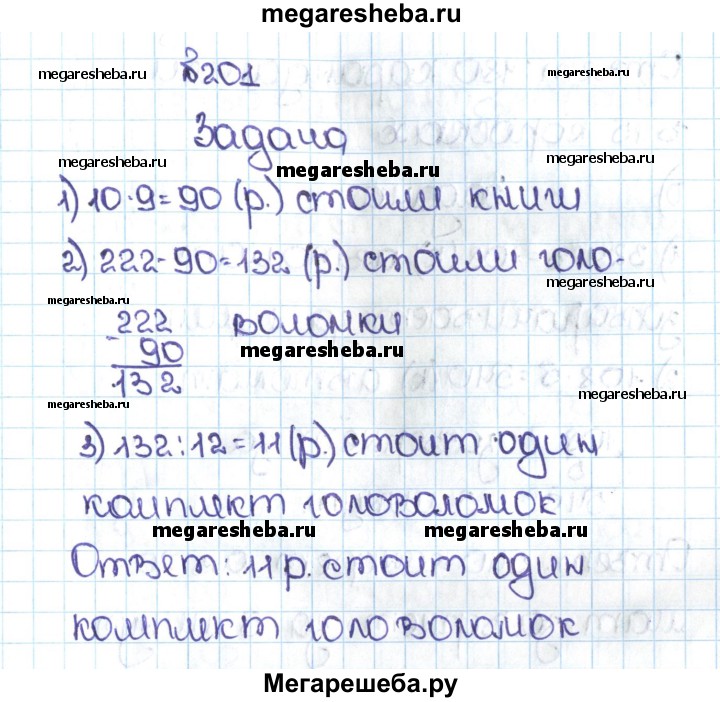 megaresheba.ru
№201
megaresheba.ru
megaresheba.ru
Задача
megaresheba.ru
megaresheba.ru
megaresheba.ru
1) 10·9=90 (р.) стоили книги
2) 222-90=132 (р.) стоили голо-
megaresheba.ru
megaresheba.ru
222 воломки
- 90
megaresheba.ru
132
megaresheba.ru
megaresheba.ru
3) 132:12=11(р.) стоит один
комплект головоломок
megaresheba.ru
megaresheba.ru
Ответ: 11 р. стоит один
комплект головоломок
Мегарешеба.ру